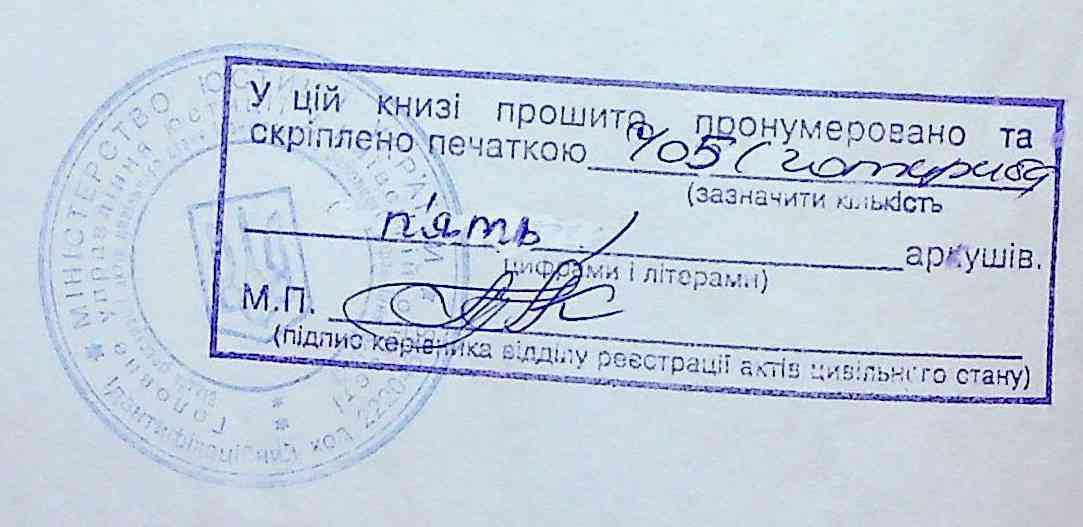 У цій книзі прошито, пронумеровано та
скріплено печаткою 405 (чотириста
(зазначити кількість
п'ять аркушів.
цифрами і літерами)
М.П.
(підпис керівника відділу реєстрації актів цивільного стану)
МІНІСТЕРСТВО ЮСТИЦІЇ УКРАЇНИ
Головне управління юстиції
Ідентифікаційний код